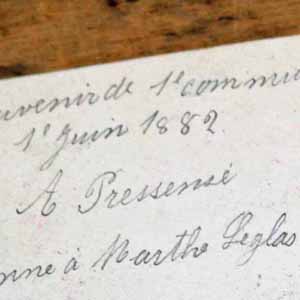 uvenir de 1e commu
1e Juin 1882.
A Pressensé
onne à Marthe Leglas